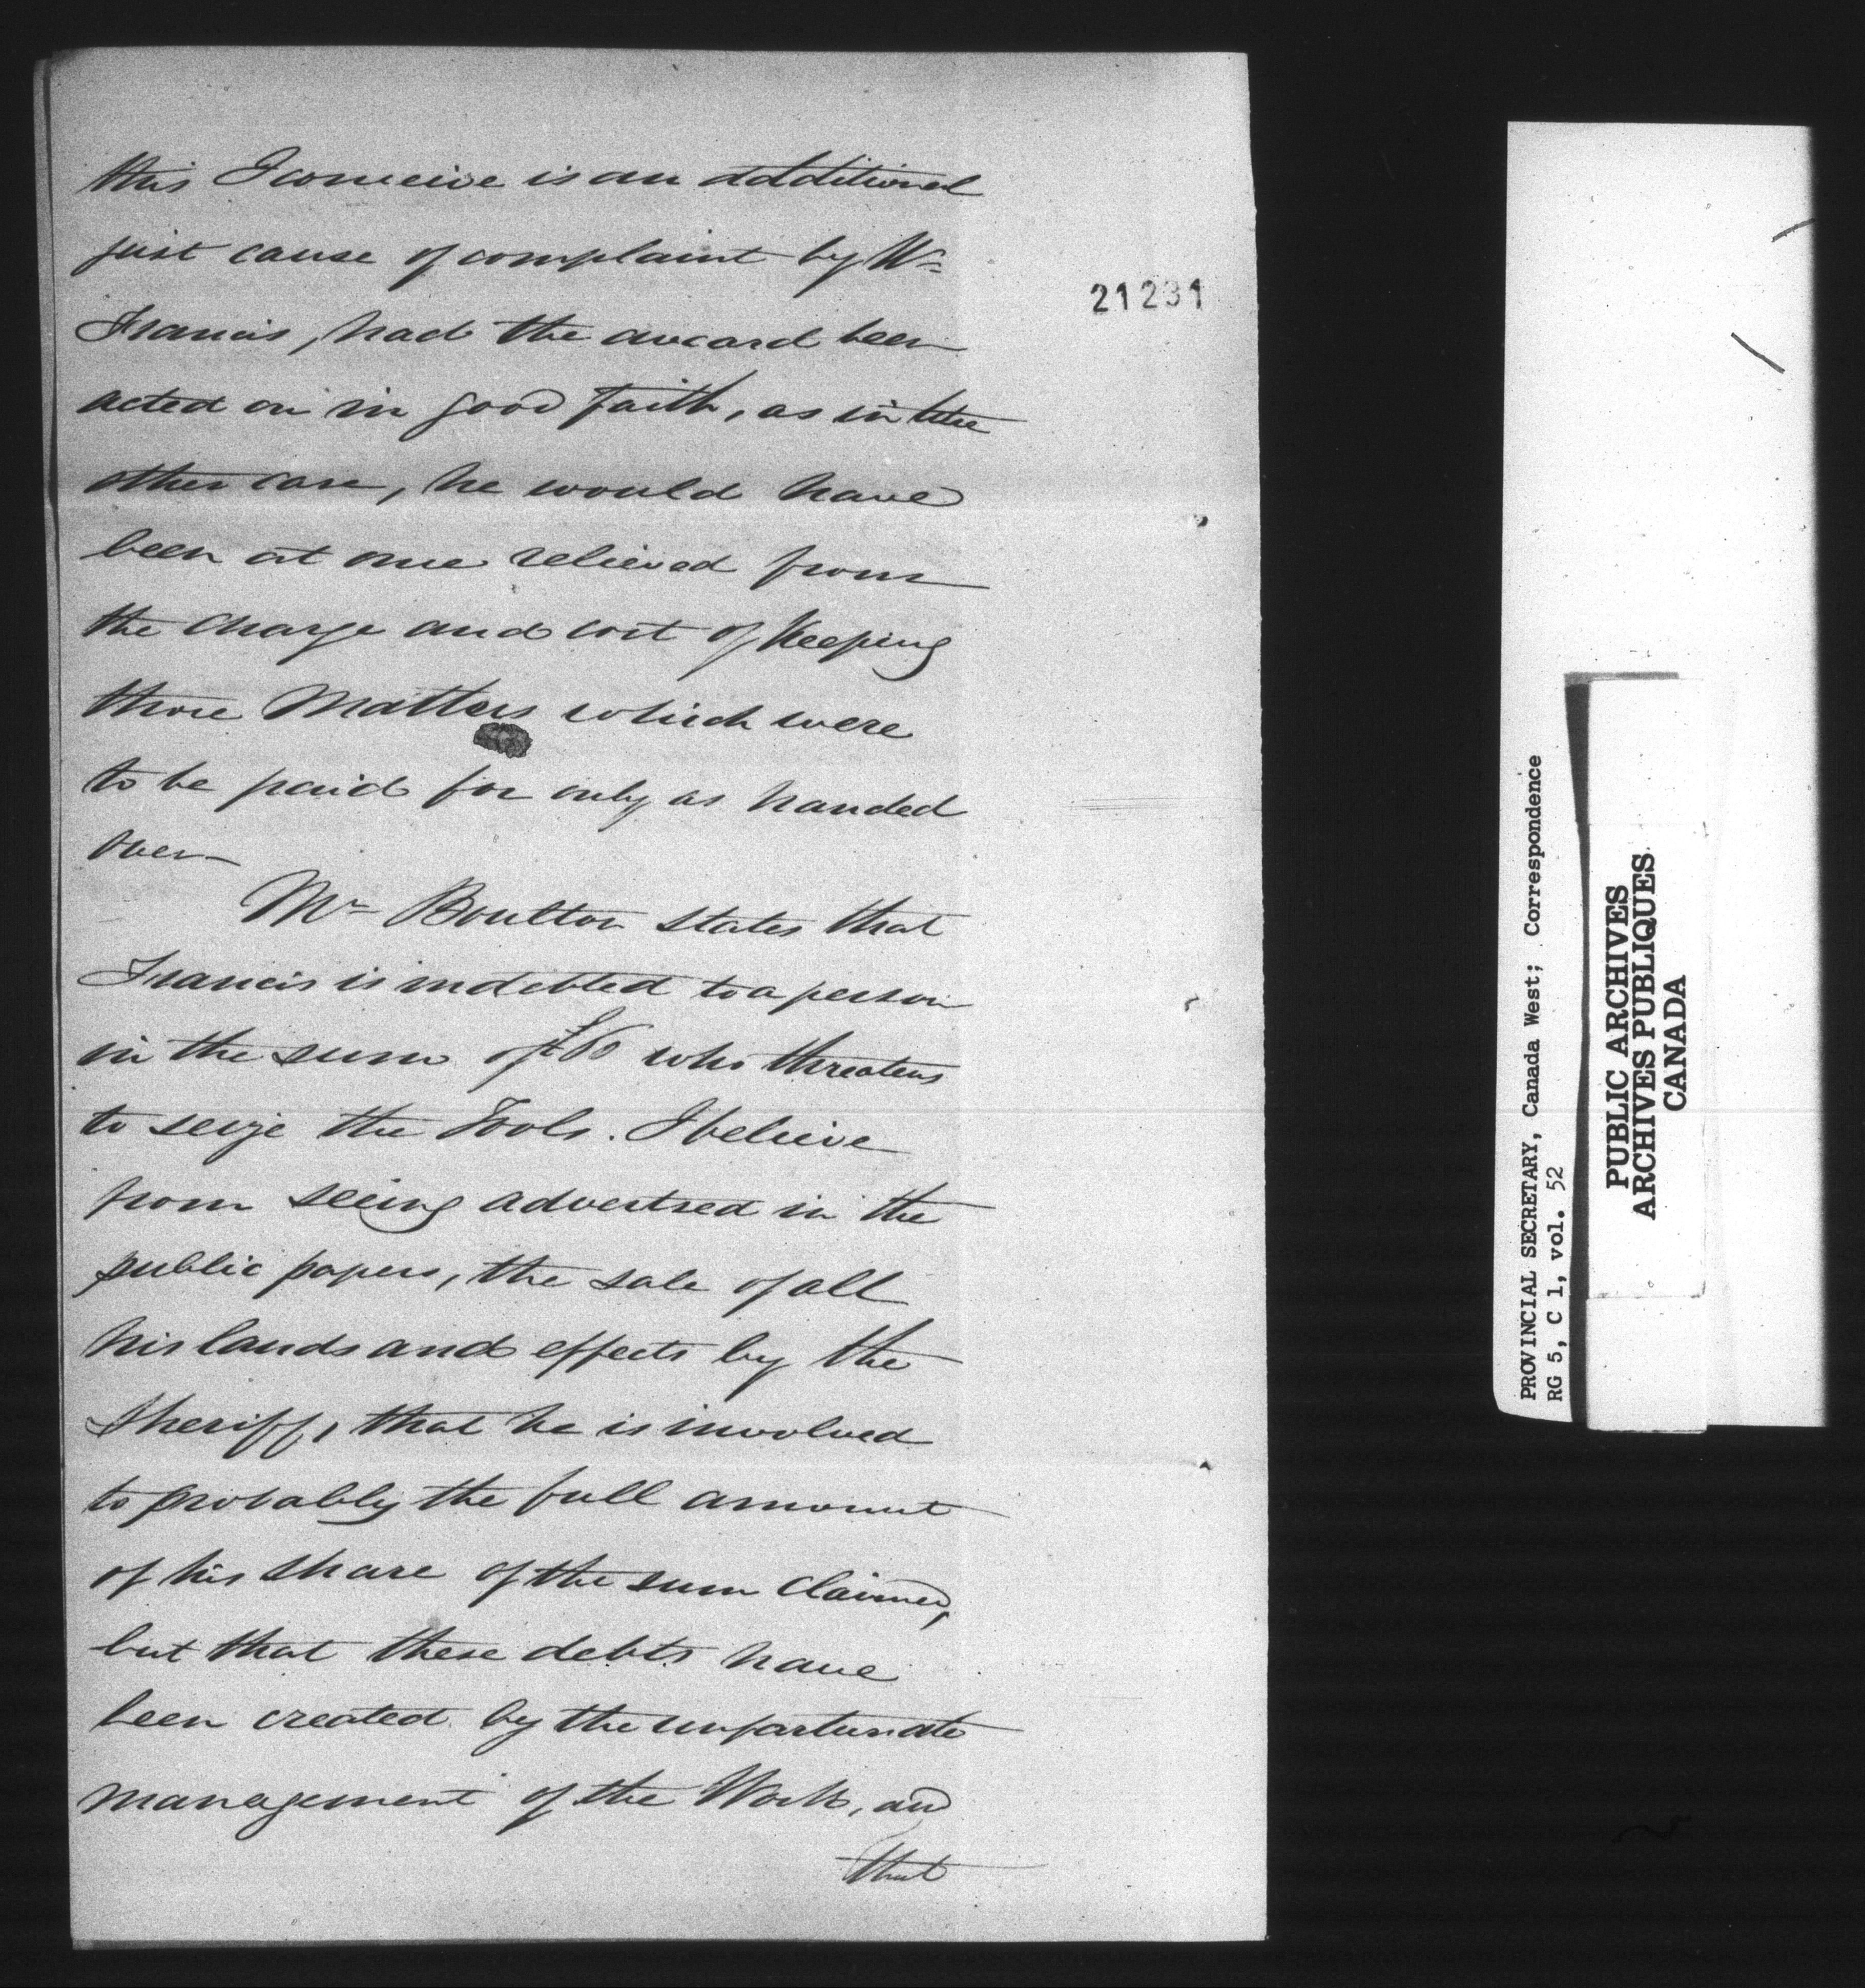 this I conceive is an additional
just cause of complaint by Mr
Francis, had the award been
acted on in good faith, as in the
other case, he would have
been at once relieved from
the charge and cost of keeping
those matters which were
to be paid for only as handed
over
Mr Boulton states that
Francis is indebted to a person
in the sum of who threatens
to seize the Tools. I believe
from seeing advertsed in the
public papers, the sale of all
his lands and effects by the
Sheriff, that he is involved
to probably the full amount
of his share of the sum claimed,
but that these debts have
been created by the unfortunate
management of the Work, and
that
21231
PROVINCIAL SECRETARY, Canada West; Correspondence
RG 5, C 1, vol. 52
PUBLIC ARCHIVES
ARCHIVES PUBLIQUES
CANADA